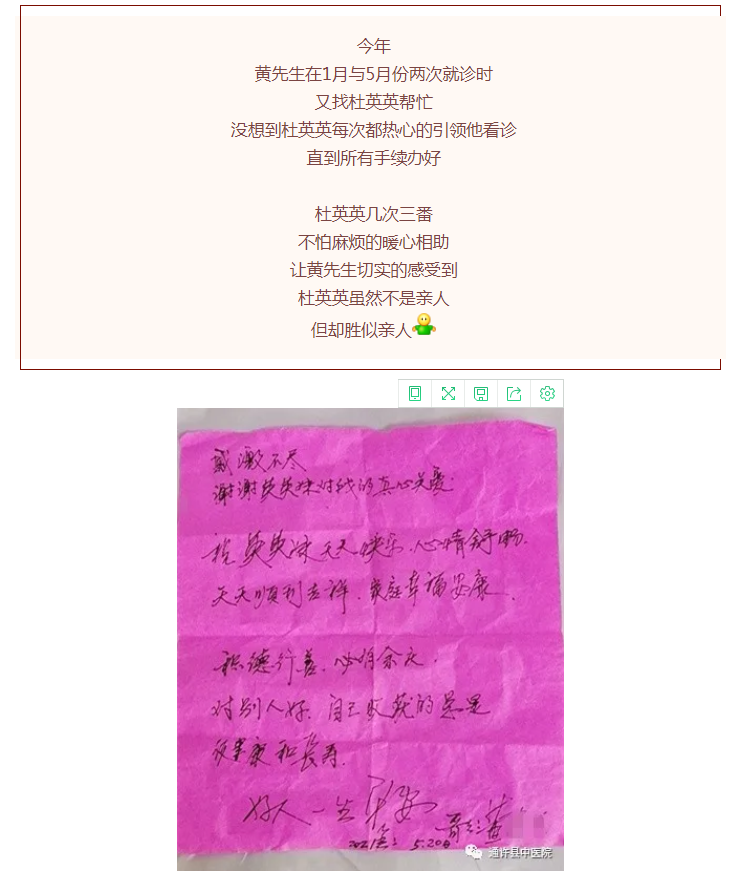 今年
黄先生在1月与5月份两次就诊时
又找杜英英帮忙
没想到杜英英每次都热心的引领他看诊
直到所有手续办好
杜英英几次三番
不怕麻烦的暖心相助
让黄先生切实的感受到
杜英英虽然不是亲人
但却胜似亲人
感激不尽
谢谢英英妹对我的真心关爱
祝英英妹天天快乐.心情舒畅.
天天顺利吉祥.家庭幸福安康.
积德行善.必有余庆.
对别人好.自己收获的总是
健康和長寿.
好人一生平安
哥:黄
2021年 5.20日
通许县中医院